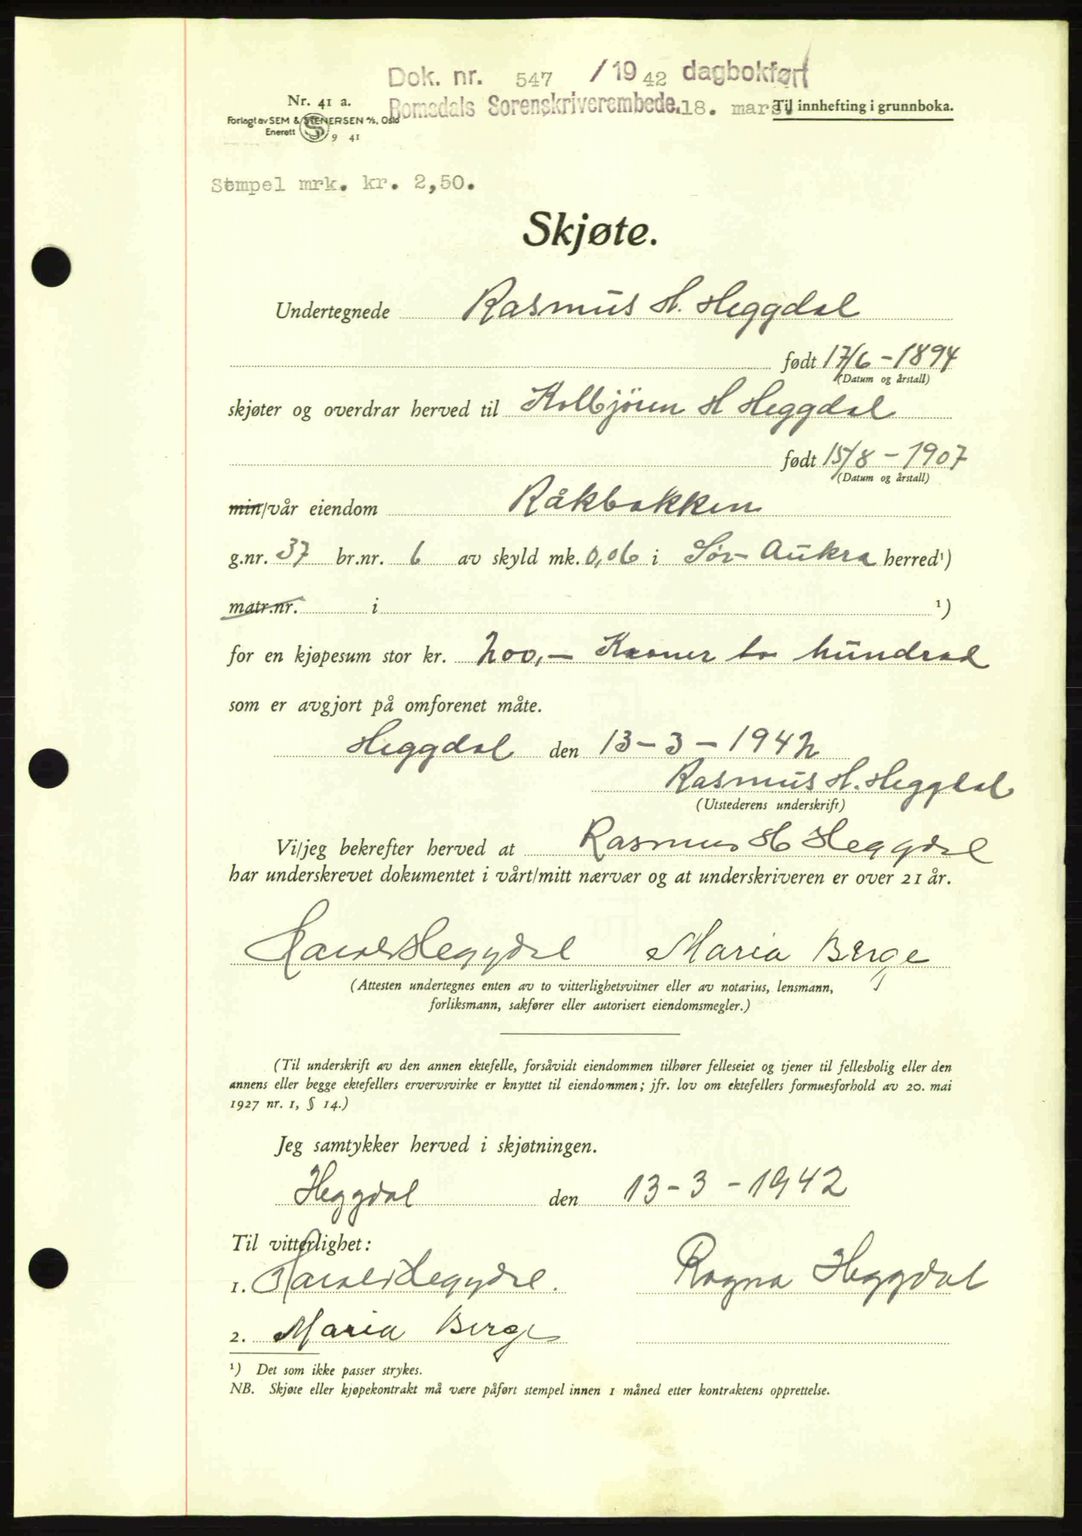 Dok. nr. 547 /1942 dagbokført
Nr. 41 a.
Romsdals Sorenskriverembede. 18. mars.
Til innhefting i grunnboka.
Forlagt av SEM & STENERSEN A/S, Oslo
Enerett S 9 41
Stempel mrk. kr. 2,50.
Skjøte.
Undertegnede Rasmus H. Heggdal
født 17/6 - 1894
(Datum og årstall)
skjøter og overdrar herved til Kolbjören H Heggdal
født 15/8 - 1907
(Datum og årstall)
min/vår eiendom Råkbakken
g.nr. 37 br.nr. 6 av skyld mk. 0,06 i Sør-Aukra herred¹)
matr.nr. i ¹)
for en kjøpesum stor kr. 200,- Kroner to hundrad
som er avgjort på omforenet måte.
Heggdal den 13-3-1942
Rasmus H. Heggdal
(Utstederens underskrift)
Vi/jeg bekrefter herved at Rasmus H Heggdal
har underskrevet dokumentet i vårt/mitt nærvær og at underskriveren er over 21 år.
Harald Heggdal Maria Berge
(Attesten undertegnes enten av to vitterlighetsvitner eller av notarius, lensmann,
forliksmann, sakfører eller autorisert eiendomsmegler.)
(Til underskrift av den annen ektefelle, forsåvidt eiendommen tilhører felleseiet og tjener til fellesbolig eller den
annens eller begge ektefellers ervervsvirke er knyttet til eiendommen; jfr. lov om ektefellers formuesforhold av 20. mai
1927 nr. 1, § 14.)
Jeg samtykker herved i skjøtningen.
Heggdal den 13-3-1942
Til vitterlighet:
1. Harald Heggdal. Ragna Heggdal
2. Maria Berge
¹) Det som ikke passer strykes.
NB. Skjøte eller kjøpekontrakt må være påført stempel innen 1 måned etter kontraktens opprettelse.